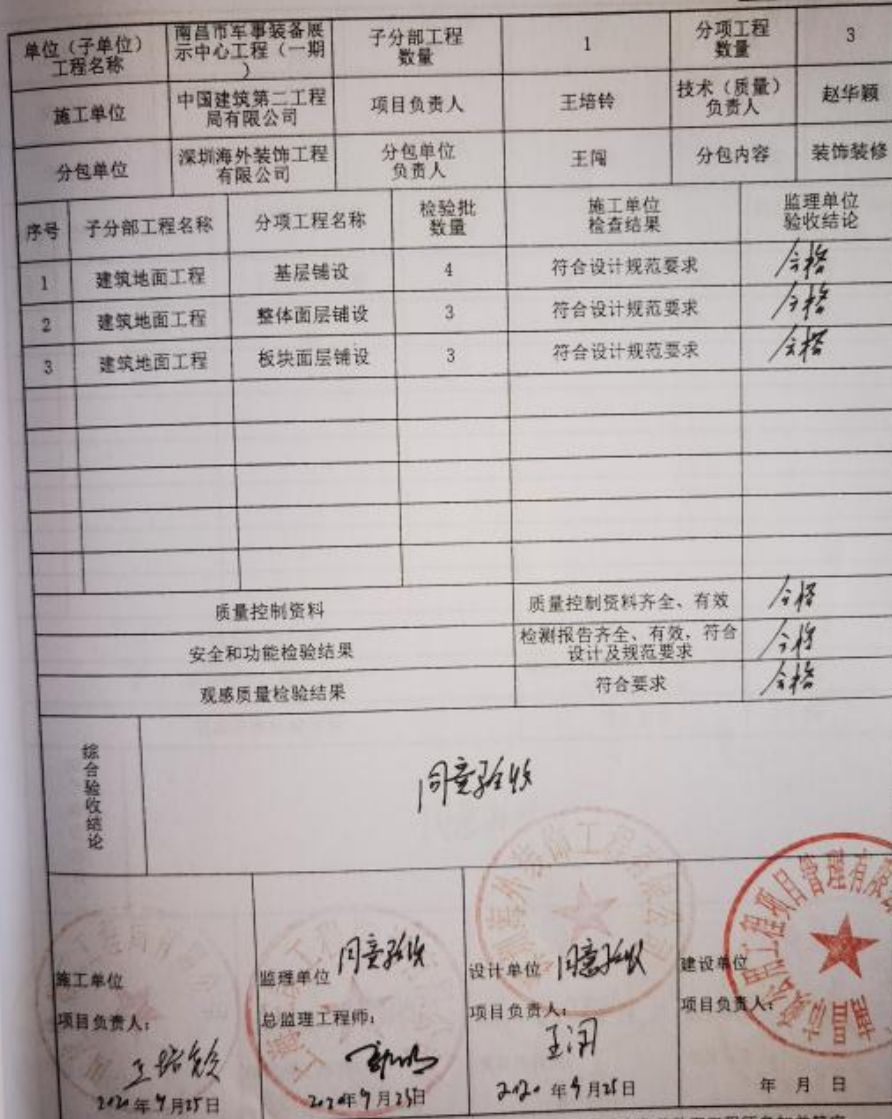 单位（子单位）
工程名称
南昌市军事装备展
示中心工程（一期
）
子分部工程
数量
1
分项工程
数量
3
施工单位
中国建筑第二工程
局有限公司
项目负责人
王培铃
技术（质量）
负责人
赵华颖
分包单位
深圳海外装饰工程
有限公司
分包单位
负责人
王闯
分包内容
装饰装修
序号
子分部工程名称
分项工程名称
检验批
数量
施工单位
检查结果
监理单位
验收结论
1
建筑地面工程
基层铺设
4
符合设计规范要求
合格
2
建筑地面工程
整体面层铺设
3
符合设计规范要求
合格
3
建筑地面工程
板块面层铺设
3
符合设计规范要求
合格
质量控制资料
质量控制资料齐全、有效
合格
安全和功能检验结果
检测报告齐全、有效，符合
设计及规范要求
合格
观感质量检验结果
符合要求
合格
综合验收结论
同意验收
施工单位
项目负责人：
2020年9月25日
监理单位
同意验收
总监理工程师：
2020年9月25日
设计单位
同意验收
项目负责人：
王闯
2020年9月25日
建设单位
项目负责人：
年 月 日
工程项目管理有限